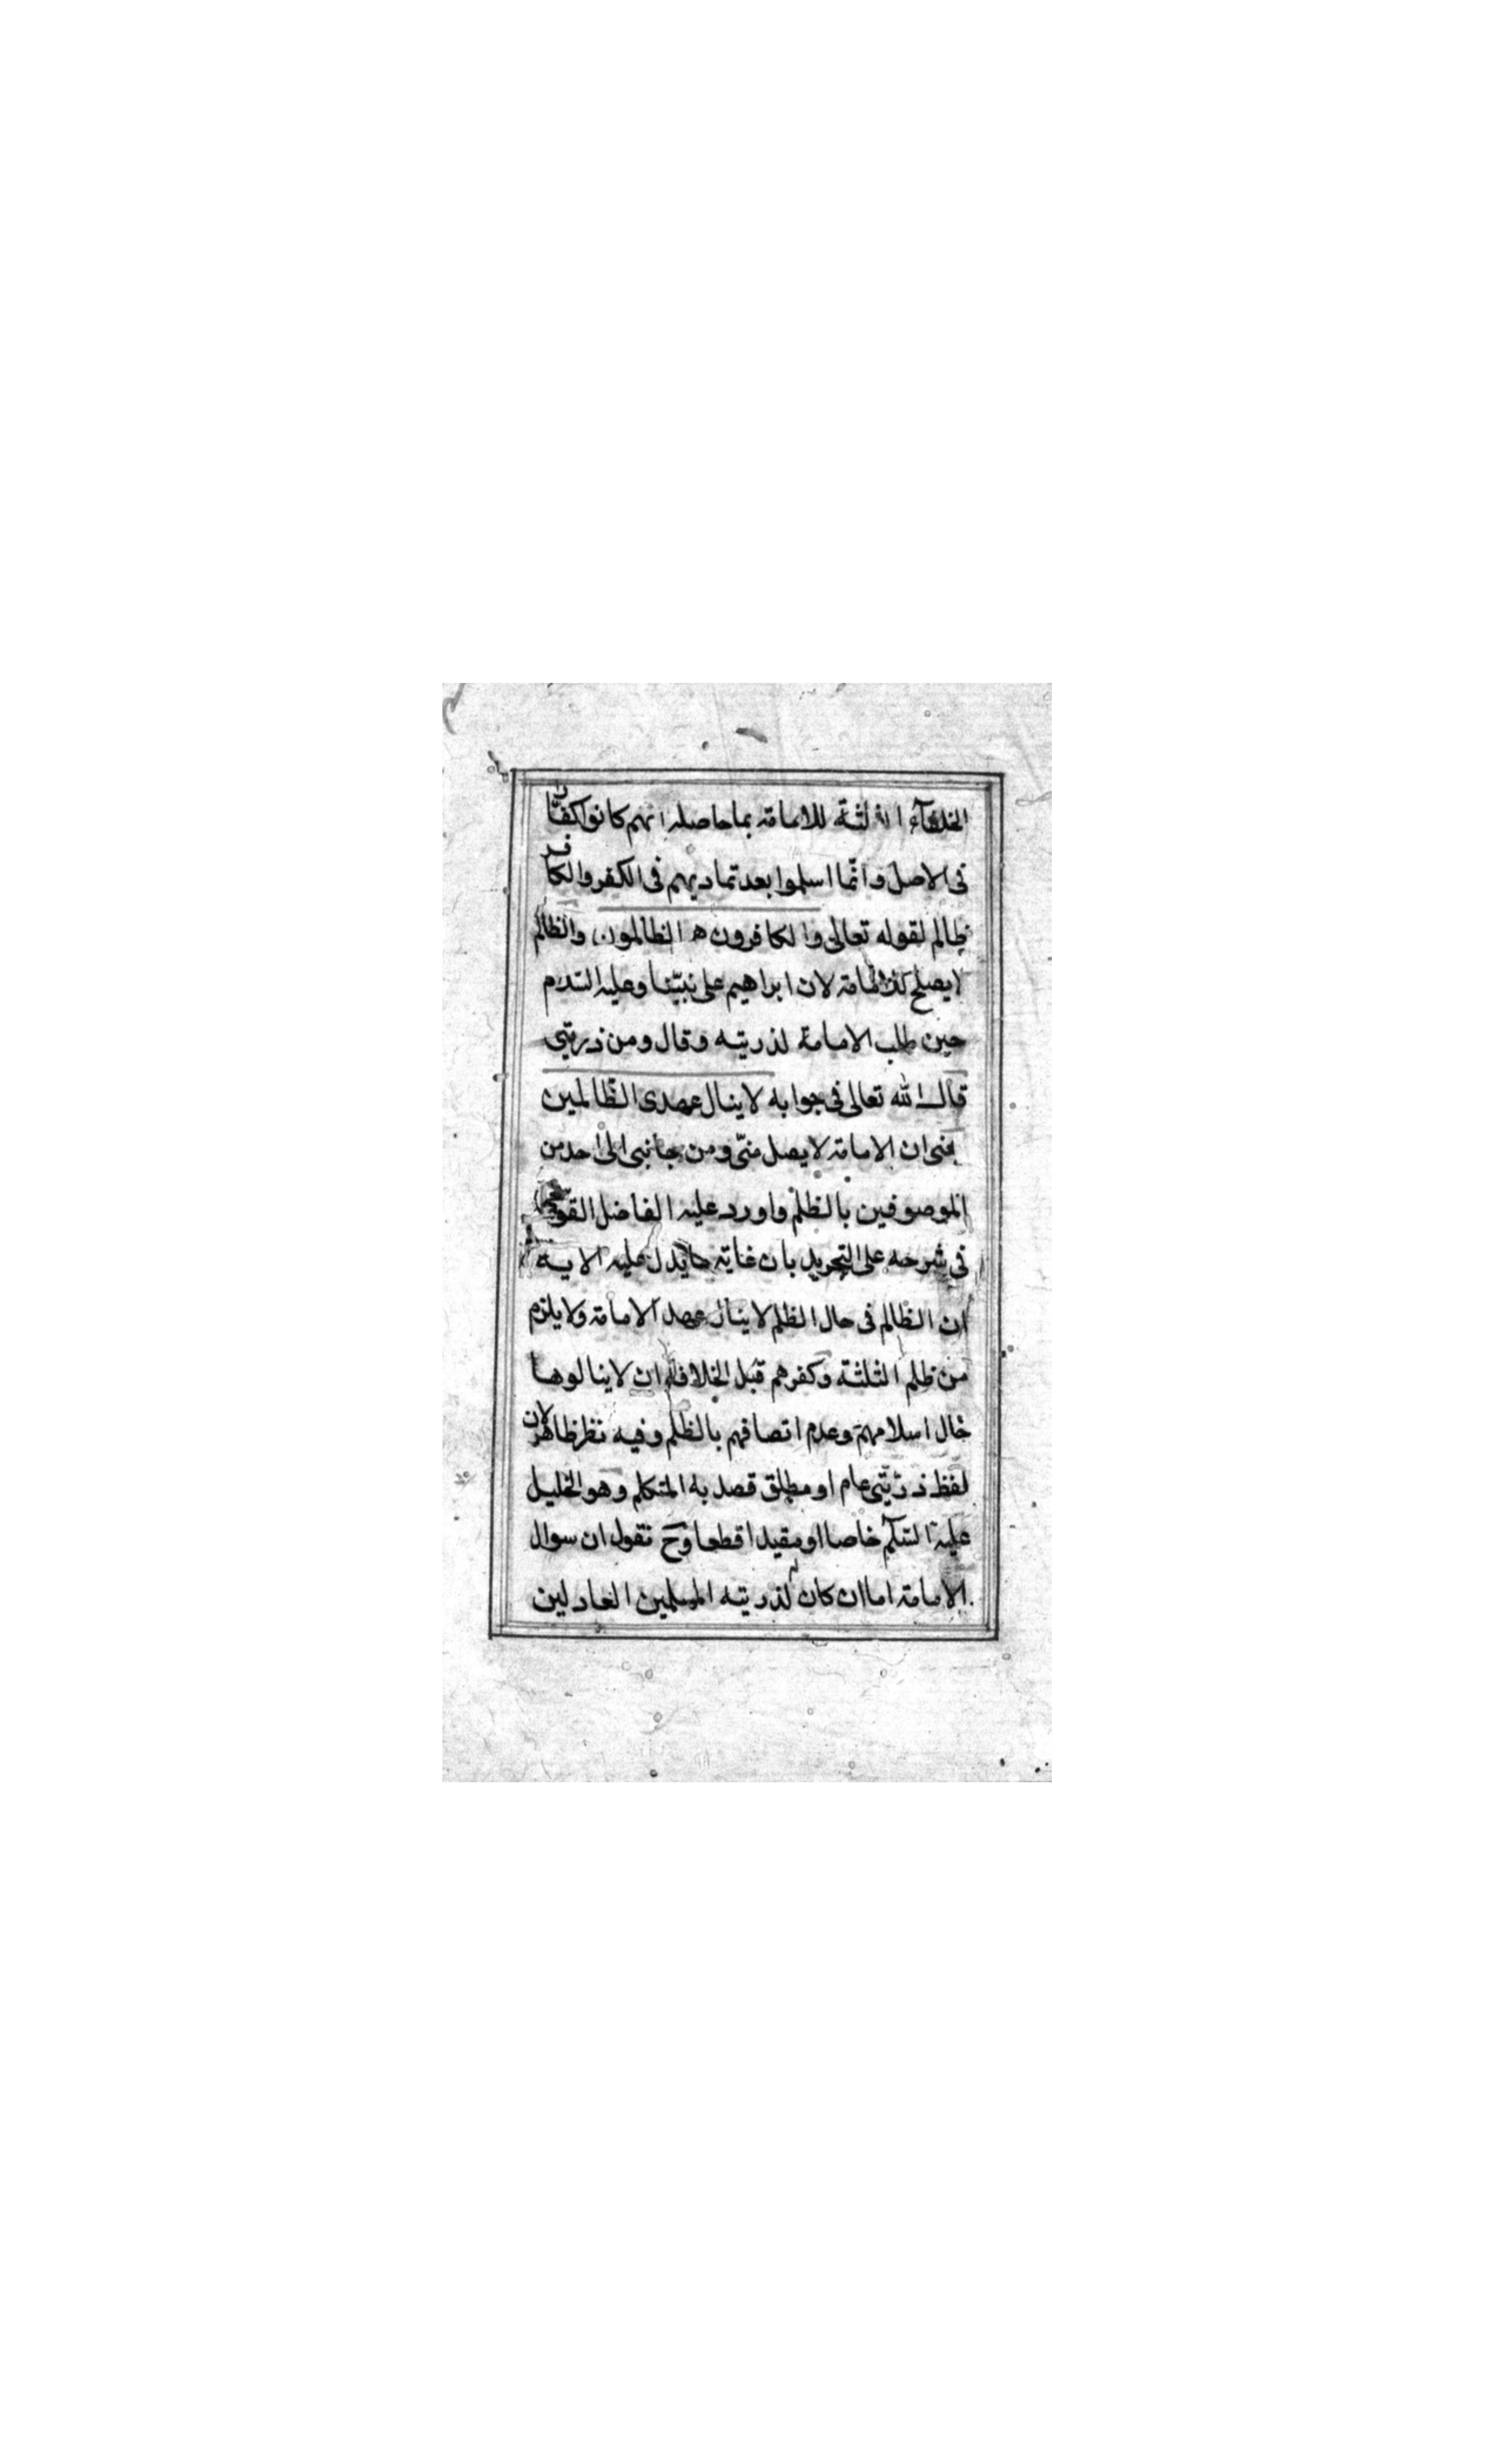 الخلفآء الثلثة للامامة بما حاصله انهم كانوا كفّارا
فى الاصل وانّما اسلموا بعد تماديهم فى الكفر والكافر
ظالم لقوله تعالى والكافرون هم الظالمون والظالم
لا يصلح للامامة لان ابراهيم على نبيّنا وعليه السلام
حين طلب الامامة لذريته وقال ومن ذريتى
قال الله تعالى فى جوابه لا ينال عهدى الظّالمين
يعنى ان الامامة لا يصل منّى ومن جانبى الى احد من
الموصوفين بالظلم واورد عليه الفاضل القوشجى
فى شرحه على التجريد بان غاية ما يدل عليه الاية
ان الظالم فى حال الظلم لا ينال عهد الامامة ولا يلزم
من ظلم الثلثة وكفرهم قبل الخلافة ان لا ينالوها
حال اسلامهم وعدم اتصافهم بالظلم وفيه نظر ظاهر لان
لفظ ذرّيّتى عام او مطلق قصد به المتكلم وهو الخليل
عليه السّلام خاصا او مقيدا قطعا وح نقول ان سوال
الامامة اما ان كان لذريته المسلمين العادلين